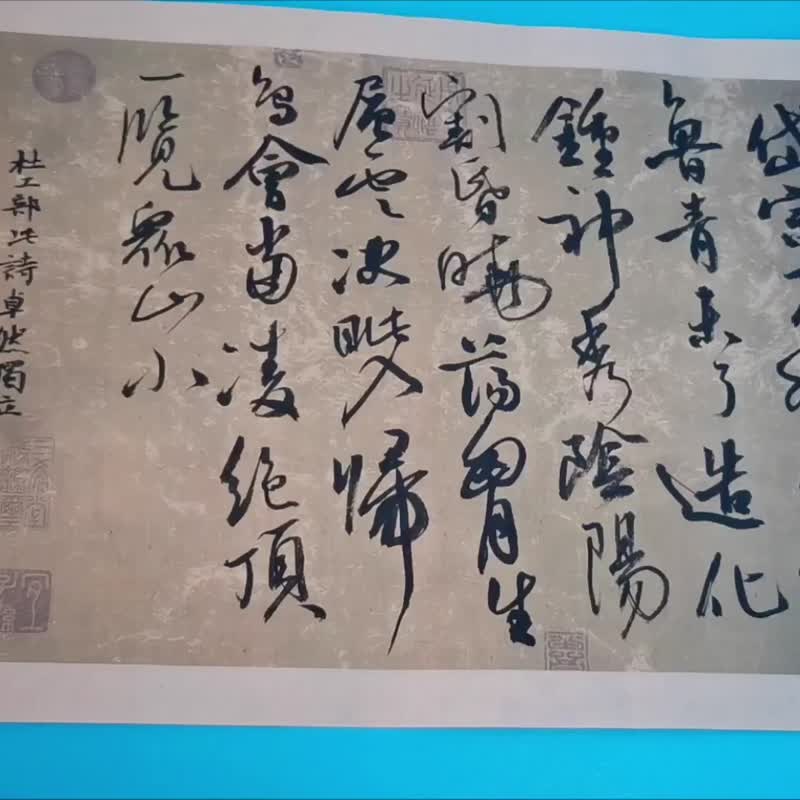 岱宗
魯青未了造化
鍾神秀陰陽
割昏曉蕩胷生
層云决眥入歸
鳥會當凌絕頂
一覽眾山小
杜工部此詩卓然獨立